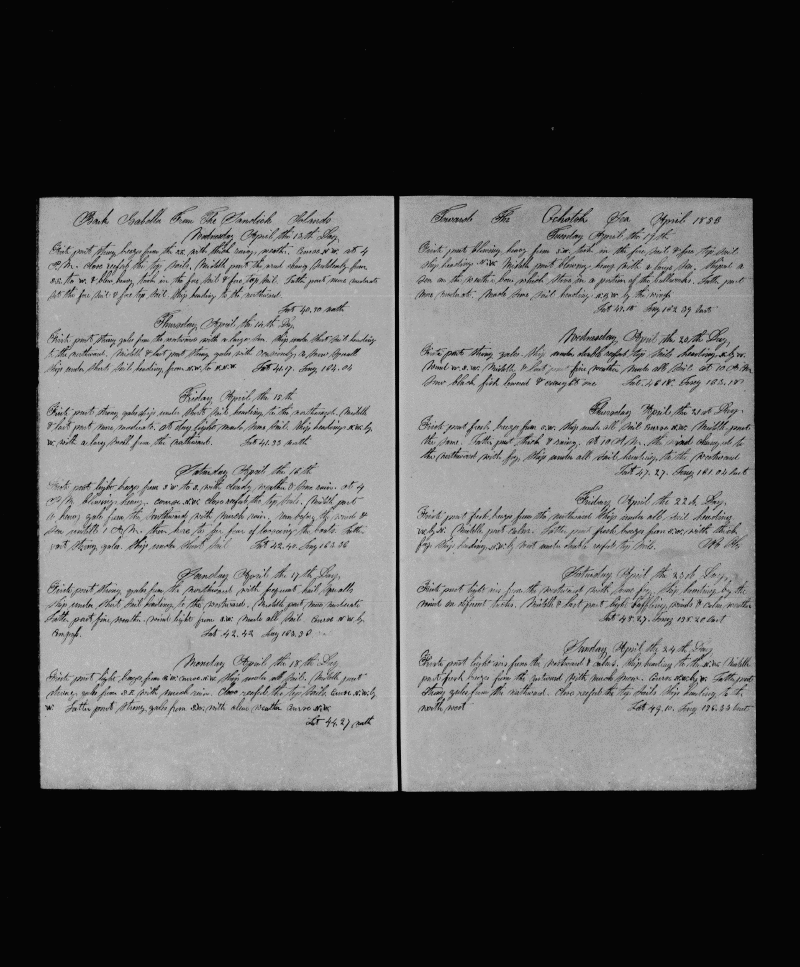 Bark Isabella From The Sandwich Islands
Wednesday April the 13th Day
First part strong breeze from the with thick rainy weather. Course N.W. at 4
P.M. close reefed the top sails. Middle part the wind suddenly from
to W. & blew heavy, took in the fore sail & fore top sail. Latter part more moderate
set the fore sail & fore top sail Ship heading to the northward.
Lat 40.30 north
Thursday April the 14th Day
First part strong gale from the northward with a large Sea Ship under short sail heading
to the northward. Middle & last part strong gales with Snow Squall
Ship under Short Sail heading from to Lat 41.17. Long 164.04
Friday April the 15th
First part strong gale ship under short sail heading to the northward. Middle
& last part more moderate. at day light made more sail. Ship heading N.W. by
W. with a large swell from the northward. Lat 41.33 north
Saturday April the 16th
First part light breeze from S.W. to S. with cloudy weather & some rain. at 4
P.M. blowing heavy course N.W. close reefed the top sails. Middle part
a heavy gale from the Northward with much rain. ran before the wind &
Sea untill 1 A.M. then hove to for fear of the boats. Latter
part strong gales. Ship under short sail Lat 42.40 Long 163.36
Sunday April the 17th Day
First part strong gales from the northward with frequent hail squalls
Ship under short sail heading to the northward. Middle part more moderate
Latter part fine weather wind light from S.W. made all sail course N.W. by
Compass. Lat 42.42 Long 163.30
Monday April the 18th Day
First part light breeze from course N.W. Ship under all sail. Middle part
strong gales from S.E with much rain. Close reefed the top sails. Course N.W. by
W. Latter part strong gales from with clear weather course N.W.
Lat 44.27 north
Towards The Ochotsk Sea April 1853
Tuesday April the 19th
First part blowing heavy from S.W. took in the fore sail & fore top sail
Ship heading N.W. Middle part blowing heavy with a large sea. Shiped a
sea on the weather bow which stove in a portion of the bullwarks. Latter part
more moderate. Made some sail heading by the wind
Lat 45.15 Long 162.39 East
Wednesday April the 20th Day
First part strong gales Ship under double reefed top sails heading by W.
Wind W.S.W. Middle & last part fine weather made all sail at 10 A.M.
Saw black fish lowered & caught one Lat. 46.18. Long 163.18
Thursday April the 21st Day
First part fresh breeze from S.W. Ship under all sail Course N.W. Middle part
the same. Latter part thick & rainy. at 10 A.M. the wind changed to
the northward with fog, Ship under all sail heading to the Westward
Lat 47.27. Long 161.04 East
Friday April the 22d Day
First part fresh breeze from the northward Ship under all sail heading
by N. Middle part calm. Latter part fresh breeze from with thick
fog. Ship heading by west under double reefed top sails. No Obs
Saturday April the 23d Day
First part light airs from the northwest with some fog. Ship heading by the
wind on diferent tacks. Middle & last part light baffling winds & calm weather
Lat 48.27. Long 158.20 East
Sunday April the 24th Day
First part light airs from the northward & calms. Ship heading to the N.W. Middle
part fresh breeze from the eastward with much snow. Course N.W. by W. Latter part
strong gales from the northward. Close reefed the top sails Ship heading to the
north west Lat 49.10. Long 156.33 East